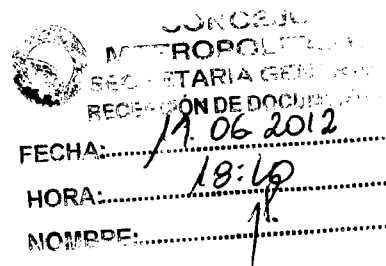 CONCEJO
METROPOLI
SECRETARIA GENERAL
RECEPCIÓN DE DOCUMENTOS
FECHA: 06 2012
HORA: 18:
NOMBRE: